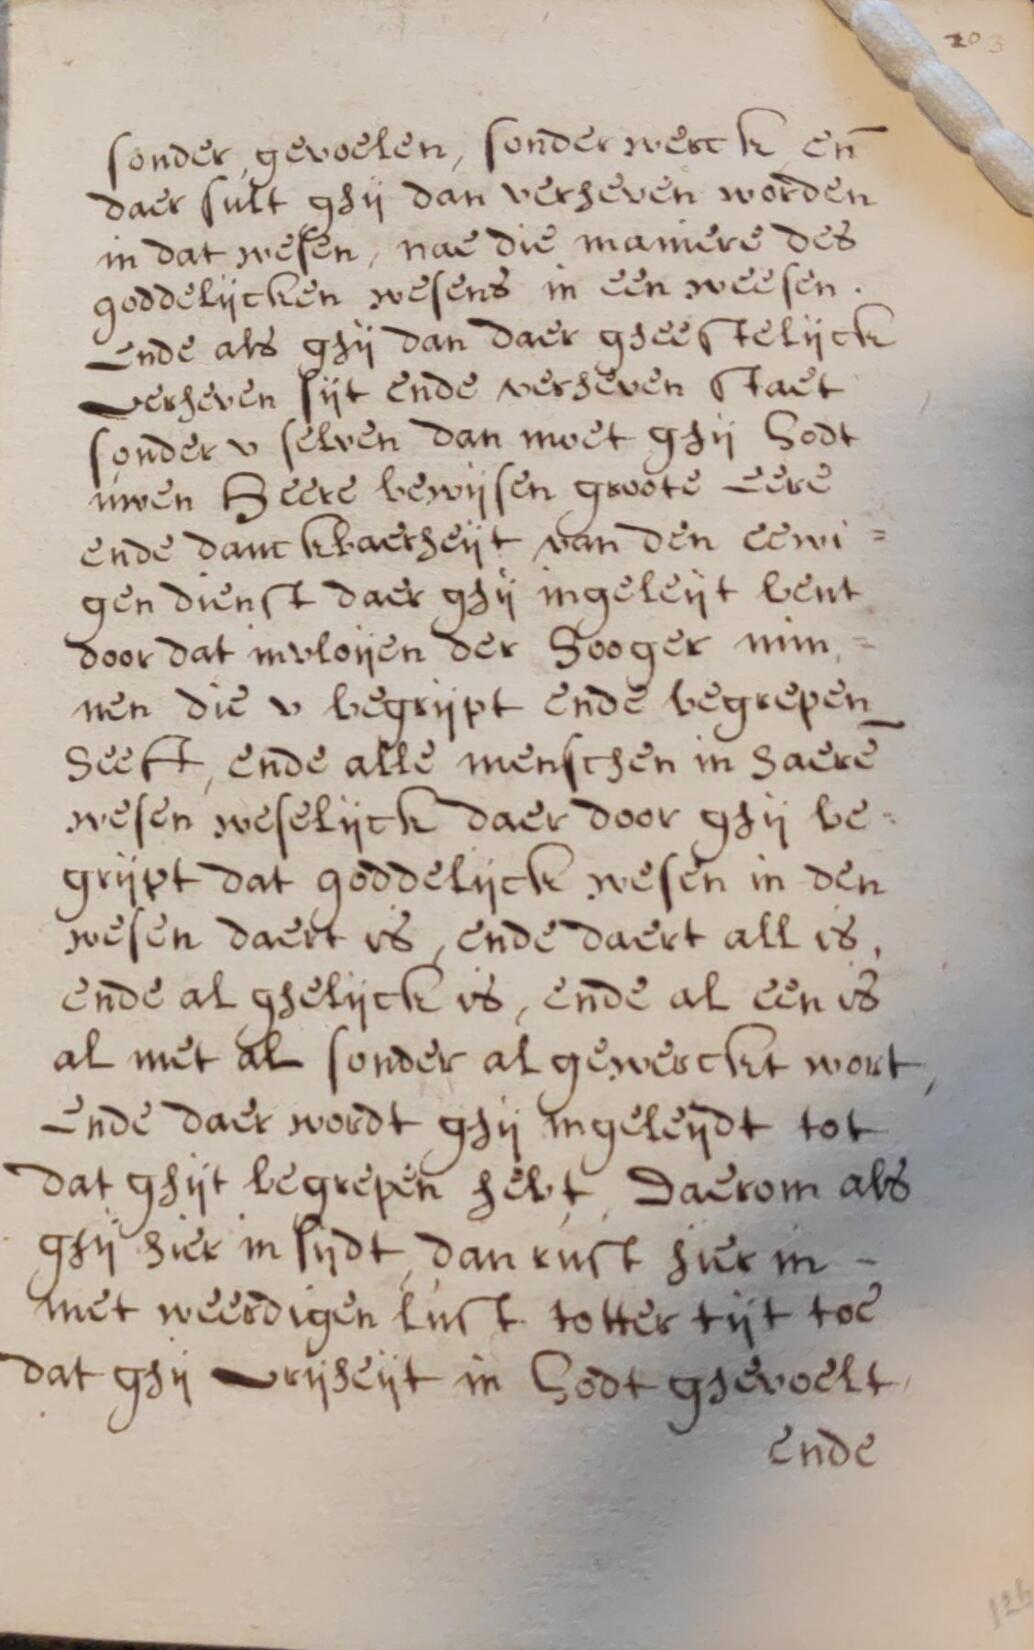 203
sonder, gevoelen, sonder werck en̄
daer sult ghij dan verheven worden
in dat wesen, nae die maniere des
goddelijcken wesens in een weesen.
Ende als ghij dan daer gheestelijck
verheven sijt ende verheven staet
sonder v selven dan moet ghij Godt
uwen Heere bewijsen groote Eere
ende danckbaerheijt van den eewi=
gen dienst daer ghij ingeleijt bent
door dat invloijen der Hooger min,=
nen die v begrijpt ende begrepen
heeft, ende alle menschen in haerē
wesen weselijck daer door ghij be=
grijpt dat goddelijck wesen in den
wesen daert is, ende daert all is,
ende al ghelijck is, ende al een is
al met al sonder al gewerckt wort,
Ende daer wordt ghij ingeleijdt tot
dat ghijt begrepen hebt, Daerom als
ghij hier in sijdt, dan rust hier in -
met weerdigen lust totter tijt toe
dat ghij vrijheijt in Godt ghevoelt,
ende
126